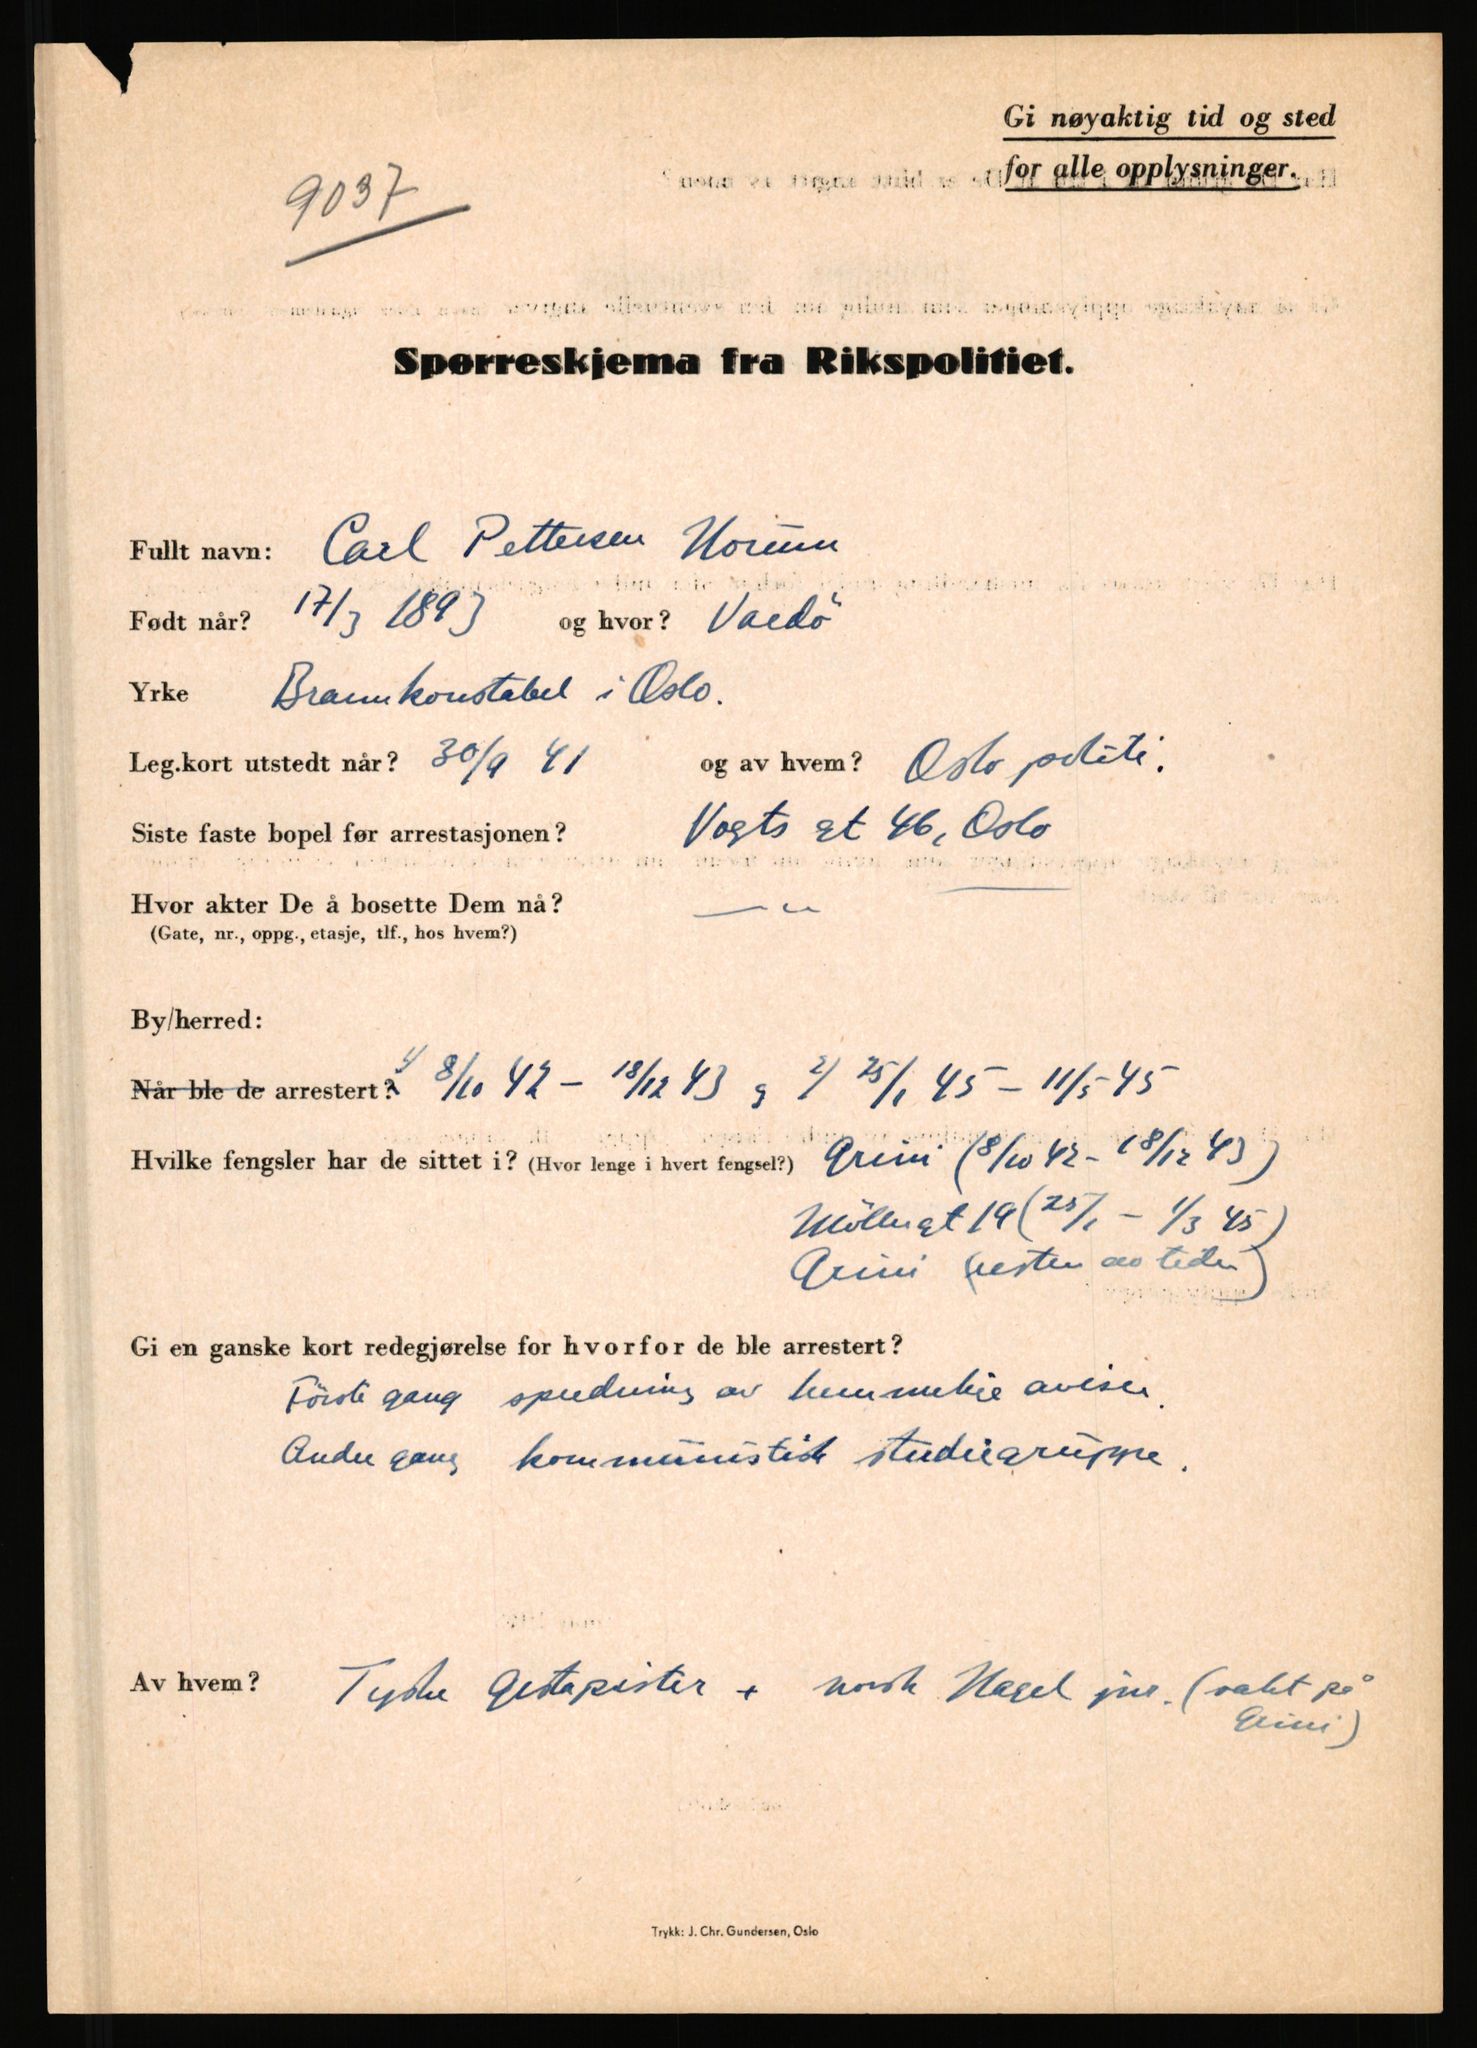 Gi nøyaktig tid og sted
for alle opplysninger.
9037
Spørreskjema fra Rikspolitiet.
Fullt navn: Carl Pettersen
Født når? 17/3 1893 og hvor? Vardö
Yrke Brannkonstabel i Oslo.
Leg.kort utstedt når? 30/9 41 og av hvem? Oslo politi.
Siste faste bopel før arrestasjonen? Vogts gt 46, Oslo
Hvor akter De å bosette Dem nå? — „ —
(Gate, nr., oppg., etasje, tlf., hos hvem?)
By/herred:
Når ble de arrestert? 1/ 8/10 42 – 18/12 43 g 2/ 25/1 45 – 11/5 45
Hvilke fengsler har de sittet i? (Hvor lenge i hvert fengsel?) Grini (8/10 42 – 18/12 43)
Möllergt 19 (25/1 – 1/3 45)
Grini (resten av tiden)
Gi en ganske kort redegjørelse for hvorfor de ble arrestert?
Förste gang spredning av hemmelige aviser.
Andre gang kommunistisk studiegruppe.
Av hvem? Tyske Gestapister + norsk Hagel jnr. (vakt på
Grini)
Trykk: J. Chr. Gundersen, Oslo